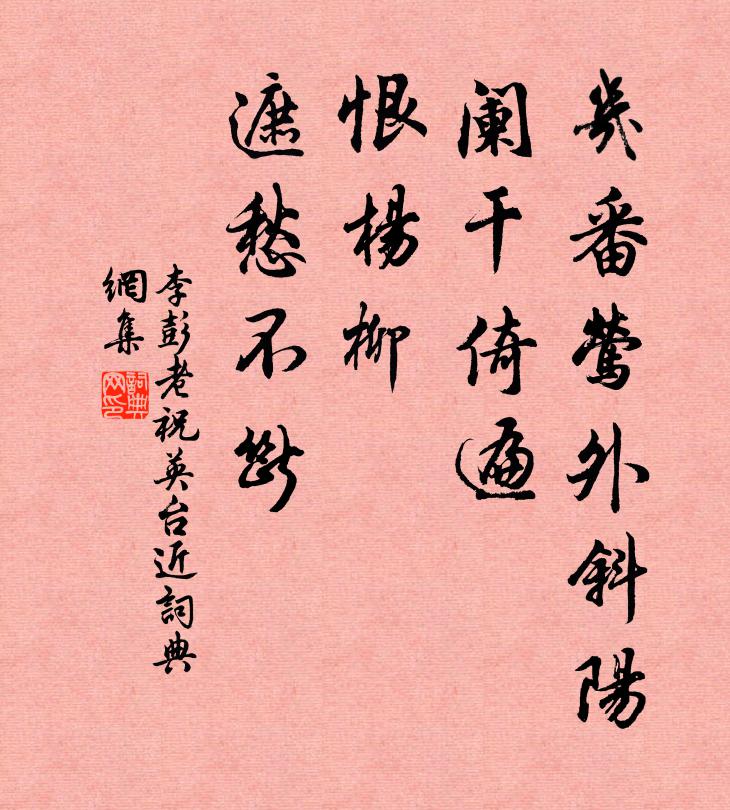 幾番鶯外斜陽
闌干倚遍
恨楊柳
遮愁不斷
李彭老祝英台近詞典
網集
詞典
网印